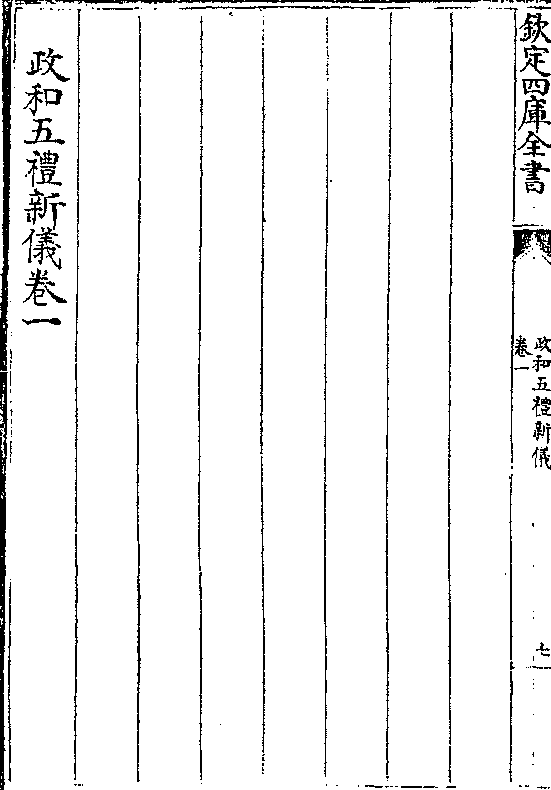 欽定四庫全書
政和五禮新儀
卷一
七
政和五禮新儀卷一